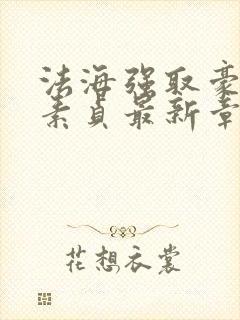 法海强取豪
素贞最新章
花想衣裳